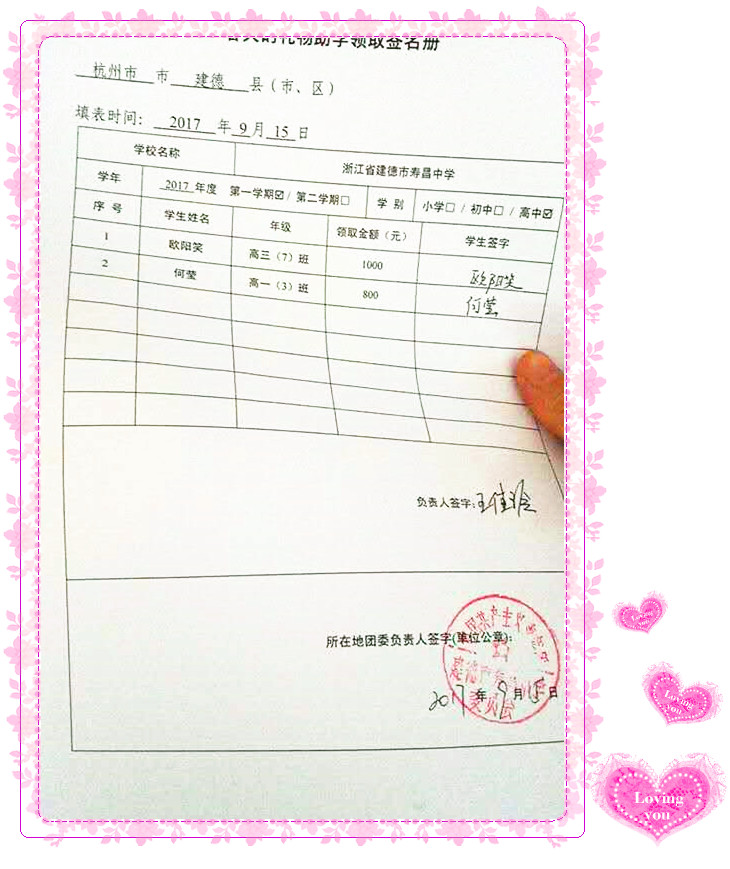 礼物助学领取签名册
杭州市 市 建德 县（市、区）
填表时间： 2017 年 9 月 15 日
学校名称 浙江省建德市寿昌中学
学年 2017 年度 第一学期☑ / 第二学期☐ 学 别 小学☐ / 初中☐ / 高中☑
序 号 学生姓名 年级 领取金额（元） 学生签字
1 欧阳笑 高三（7）班 1000 欧阳笑
2 何莹 高一（3）班 800 何莹
负责人签字：
所在地团委负责人签字(单位公章)：
建德
委员会
2017 年 9 月 15 日
Loving
you
Loving
you